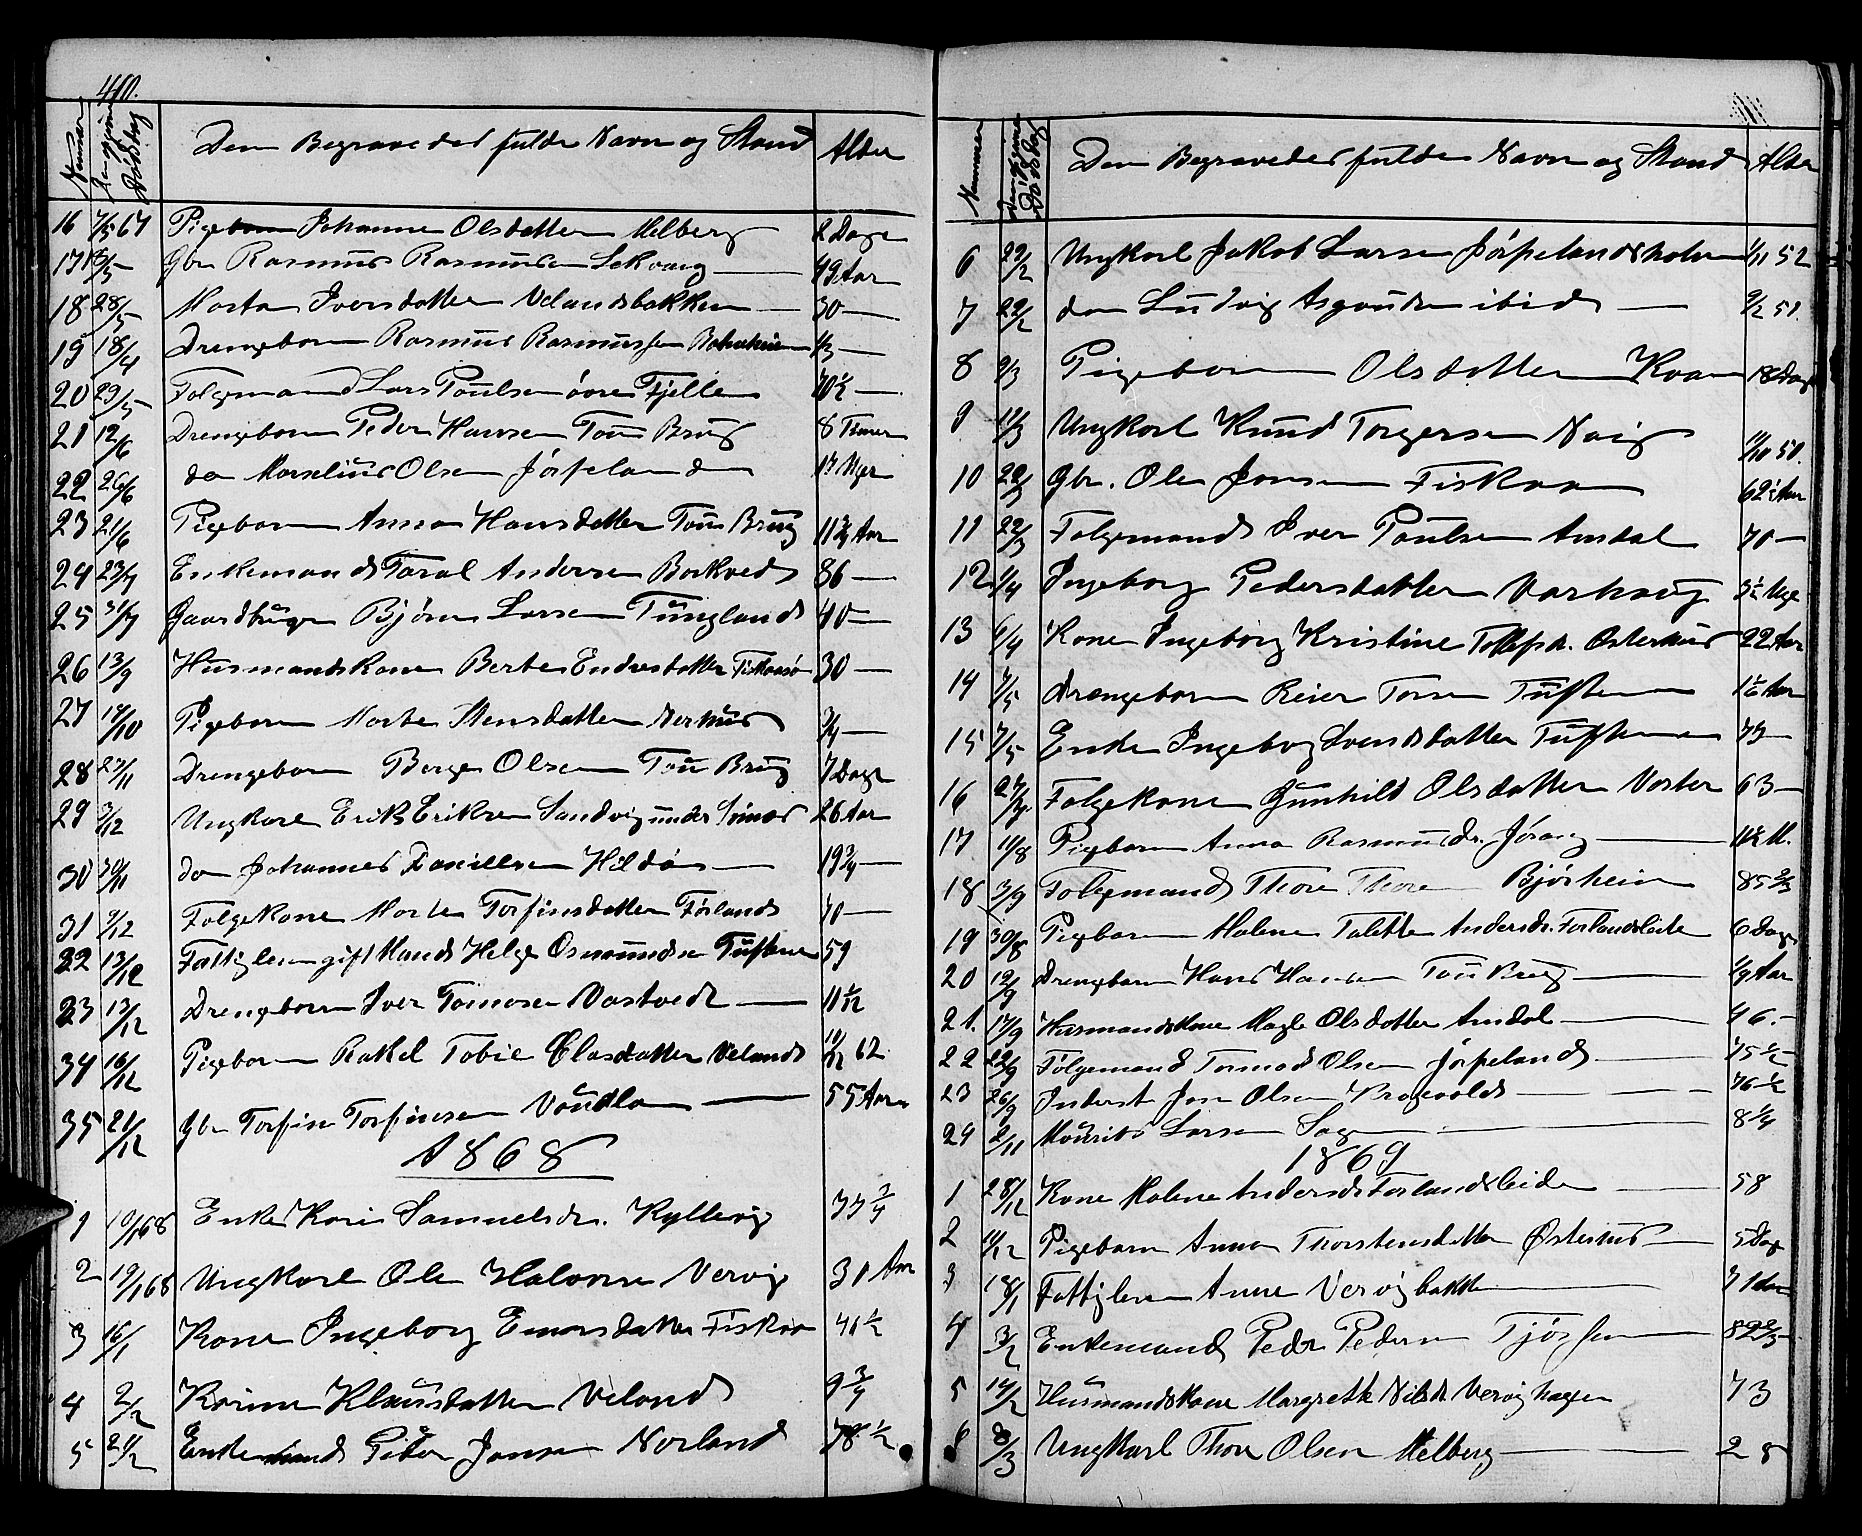 410.
Nummer Dødsdag Den Begravedes fulde Navn og Stand Alder
16 7/5 67 Pigebarn Johanne Olsdatter Melberg 2 Dage
17 Gbr Rasmus Rasmusen 49 Aar
18 28/5 Marta Iversdatter Velandsbakken 30 —
19 18/4 Drengebarn Rasmus Rasmussen
20 29/5 Folgemand Lars Poulsen øvre Fjelle 70½ —
21 12/6 Drengebarn Peder Hansen Tou Brug 8 Timer
22 26/6 do Marselius Olsen Jørpeland 17 Uger
23 21/6 Pigebarn Anna Hansdatter Tou Brug 11¾ Aar
24 23/7 Enkemand Taral Andersen Borkved 86 —
25 31/7 Gaardbruger Bjørn Larsen Tungland 40 —
26 13/9 Husmandskone Berte Endresdatter Fiskaasø 30 —
27 14/10 Pigebarn Marte Stensdatter Nerhus ¾ —
28 27/11 Drengebarn Berge Olsen Tou Brug 7 Dage
29 3/12 Ungkarl Erik Eriksen Sandvig under 26 Aar
30 30/11 do Johannes Danielsen Hildøe 19¾ —
31 9/12 Folgekone Marte Torfinsdatter Førland 70 —
32 13/12 Fattiglem gift Mand Helge Osmundsen Tuften 59
33 13/12 Drengebarn Iver Tomasen Vostvedt 11 1/12
34 16/12 Pigebarn Rakel Tobie Olasdatter Veland 62
35 21/12 Gbr Torfin Torfinsen Voudla 55 Aar
1868
1 10/1 68 Enke Kari Samuelsdr. Kyllevig 77¾
2 19/1 68 Ungkarl Ole Halvorsen Vervig 31 Aar
3 16/1 Kone Ingeborg Einarsdatter Fiskaa 41½
4 2/2 Karine Klausdatter Veland 9¾
5 21/2 Enkemand Peder Jonsen Norland 78½
Nummer Dødsdag Den Begravedes fulde Navn og Stand Alder
6 22/2 Ungkarl Jakob Larsen Jørpelandsholm 1/11 52
7 22/2 do Ludvig Asgoutsen ibid — 9/2 51.
8 2/3 Pigebarn Olsdatter Kvam 18 Dage
9 14/3 Ungkarl Knud Torgersen Naig 11/10 50.
10 22/3 Gbr. Ole Jonsen Fiskaa 62½ Aar
11 22/3 Folgemand Iver Poulsen Amdal 70 —
12 1/4 Ingeborg Pedersdatter Varhaug 3½ Uge
13 6/4 Kone Ingeborg Kristine Tollefsd. Osterhus 22 Aar
14 7/5 Drengebarn Reier Torsen Tuften 1½ Aar
15 7/5 Enke Ingeborg Svendsdatter Tuften 77
16 27/7 Folgekone Gunhild Olsdatter Voster 63 —
17 11/8 Pigebarn Anna Rasmusdr. Jøsang 1½ M.
18 3/9 Folgemand Thore Thoresen Bjørheim 85 2/3
19 30/8 Pigebarn Malene Talette Andersdr. Forlandsleite 6 Dage
20 12/9 Drengebarn Hans Hansen Tou Brug
21. 17/9 Husmandskone Magle Olsdatter Amdal 46. —
22 22/9 Følgemand Tormod Olsen Jørpeland 75½
23 26/9 Inderst Jon Olsen Kragevold 76½
24 2/11 Mourits Larsen Sage 8¼
1869
1 28/12 Kone Malene Andersd Førlandsleiden 58
2 11/12 Pigebarn Anna Thorstensdatter Østerhus 5 Dage
3 18/1 Fattiglem Anne Vervigbakke 71 Aar
4 3/2 Enkemand Peder Pedersen Tjøstem
5 14/2 Husmandskone Margrethe Nilsdr Vervighagen 73
6 8/3 Ungkarl Thore Olsen Melberg 28